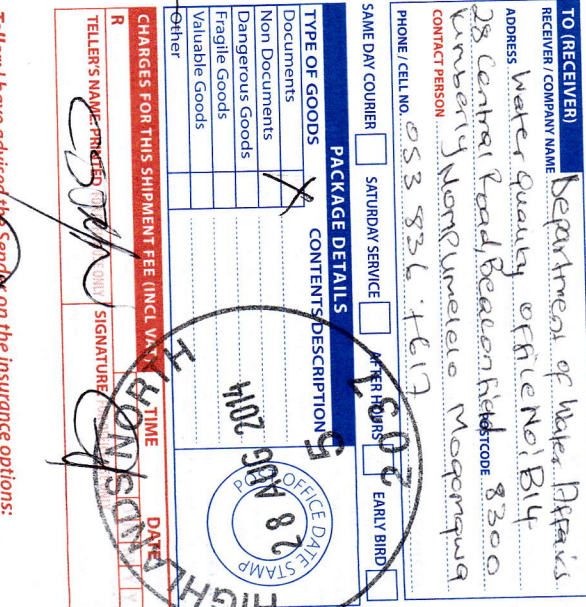 TO (RECEIVER)
RECEIVER / COMPANY NAME Department of Water Affairs
ADDRESS Water Quality office No: B14
28 Central Road, Beaconfield POSTCODE 8300
Kimberly
CONTACT PERSON Nompumelelo
PHONE / CELL NO. 053 836
SAME DAY COURIER SATURDAY SERVICE AFTER HOURS EARLY BIRD
PACKAGE DETAILS
TYPE OF GOODS CONTENTS DESCRIPTION
Documents X
Non Documents
Dangerous Goods
Fragile Goods
Valuable Goods
Other
POST OFFICE DATE STAMP
HIGHLANDS NORTH
28 AUG 2014
5
2037
CHARGES FOR THIS SHIPMENT FEE (INCL VAT) TIME DATE
R
TELLER'S NAME PRINTED SIGNATURE
Teller: I have advised the Sender on the insurance options: